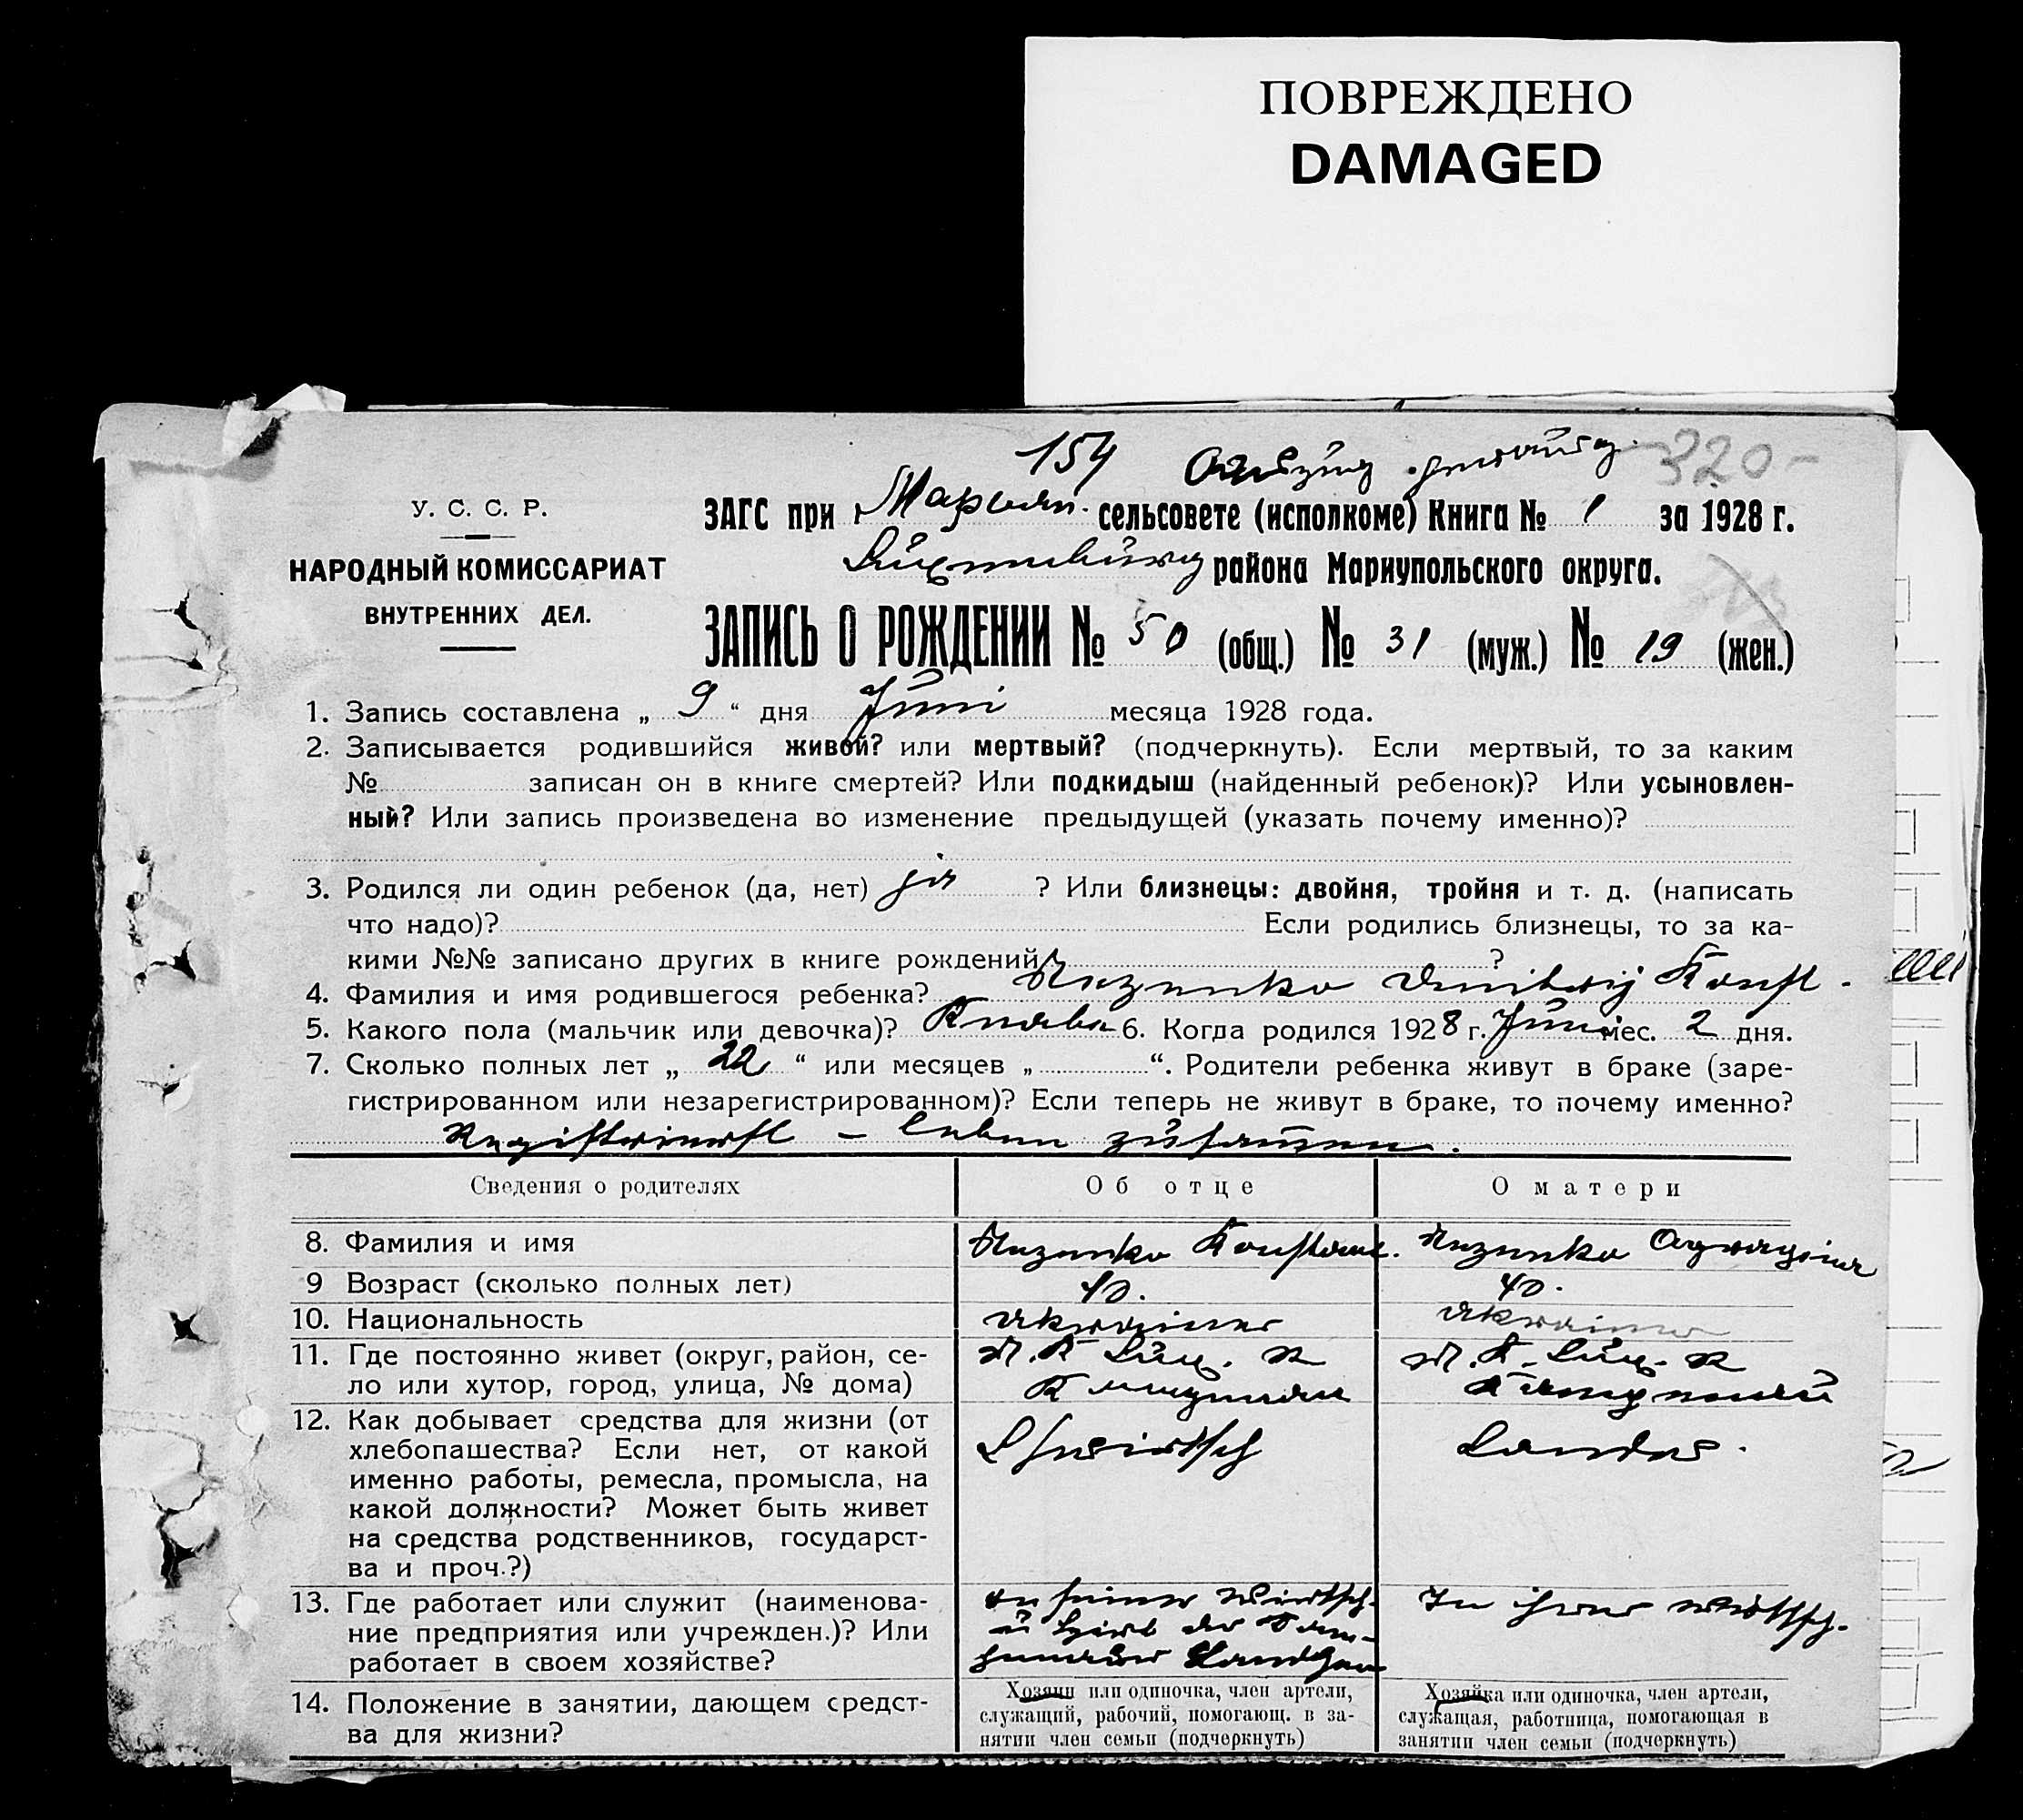 ПОВРЕЖДЕНО
DAMAGED
154 Auszug 320-
У. С. С. Р.
НАРОДНЫЙ КОМИССАРИАТ
ВНУТРЕННИХ ДЕЛ.
ЗАГС при Марьян. сельсовете (исполкоме) Книга № 1 за 1928 г.
Luxemburg района Мариупольского округа.
ЗАПИСЬ О РОЖДЕНИИ № 50 (общ.) № 31 (муж.) № 19 (жен.)
1. Запись составлена „ 9 “ дня Juni месяца 1928 года.
2. Записывается родившийся живой? или мертвый? (подчеркнуть). Если мертвый, то за каким
№ записан он в книге смертей? Или подкидыш (найденный ребенок)? Или усыновлен-
ный? Или запись произведена во изменение предыдущей (указать почему именно)?
3. Родился ли один ребенок (да, нет) ja ? Или близнецы: двойня, тройня и т. д. (написать
что надо)? Если родились близнецы, то за ка-
кими №№ записано других в книге рождений ?
4. Фамилия и имя родившегося ребенка? Rezenko Dmitrij Konst.
5. Какого пола (мальчик или девочка)? Knabe 6. Когда родился 1928 г. Juni мес. 2 дня.
7. Сколько полных лет „ 22 “ или месяцев „ “. Родители ребенка живут в браке (заре-
гистрированном или незарегистрированном)? Если теперь не живут в браке, то почему именно?
Registriert – leben zusammen.
Сведения о родителях Об отце О матери
8. Фамилия и имя Rezenko Konstant. Rezenko
9 Возраст (сколько полных лет) 40. 40.
10. Национальность Ukrainer Ukrainer
11. Где постоянно живет (округ, район, се-
ло или хутор, город, улица, № дома)
M. K. Lux. R M. K. Lux. R
12. Как добывает средства для жизни (от
хлебопашества? Если нет, от какой
именно работы, ремесла, промысла, на
какой должности? Может быть живет
на средства родственников, государст-
ва и проч.?)
13. Где работает или служит (наименова-
ние предприятия или учрежден.)? Или
работает в своем хозяйстве?
In seiner Wirtsch.
u Hirt der
In ihrer Wirtsch.
14. Положение в занятии, дающем средст-
ва для жизни?
Хозяин или одиночка, член артели,
служащий, рабочий, помогающ. в за-
нятии член семьи (подчеркнуть)
Хозяйка или одиночка, член артели,
служащая, работница, помогающая в
занятии член семьи (подчеркнуть)